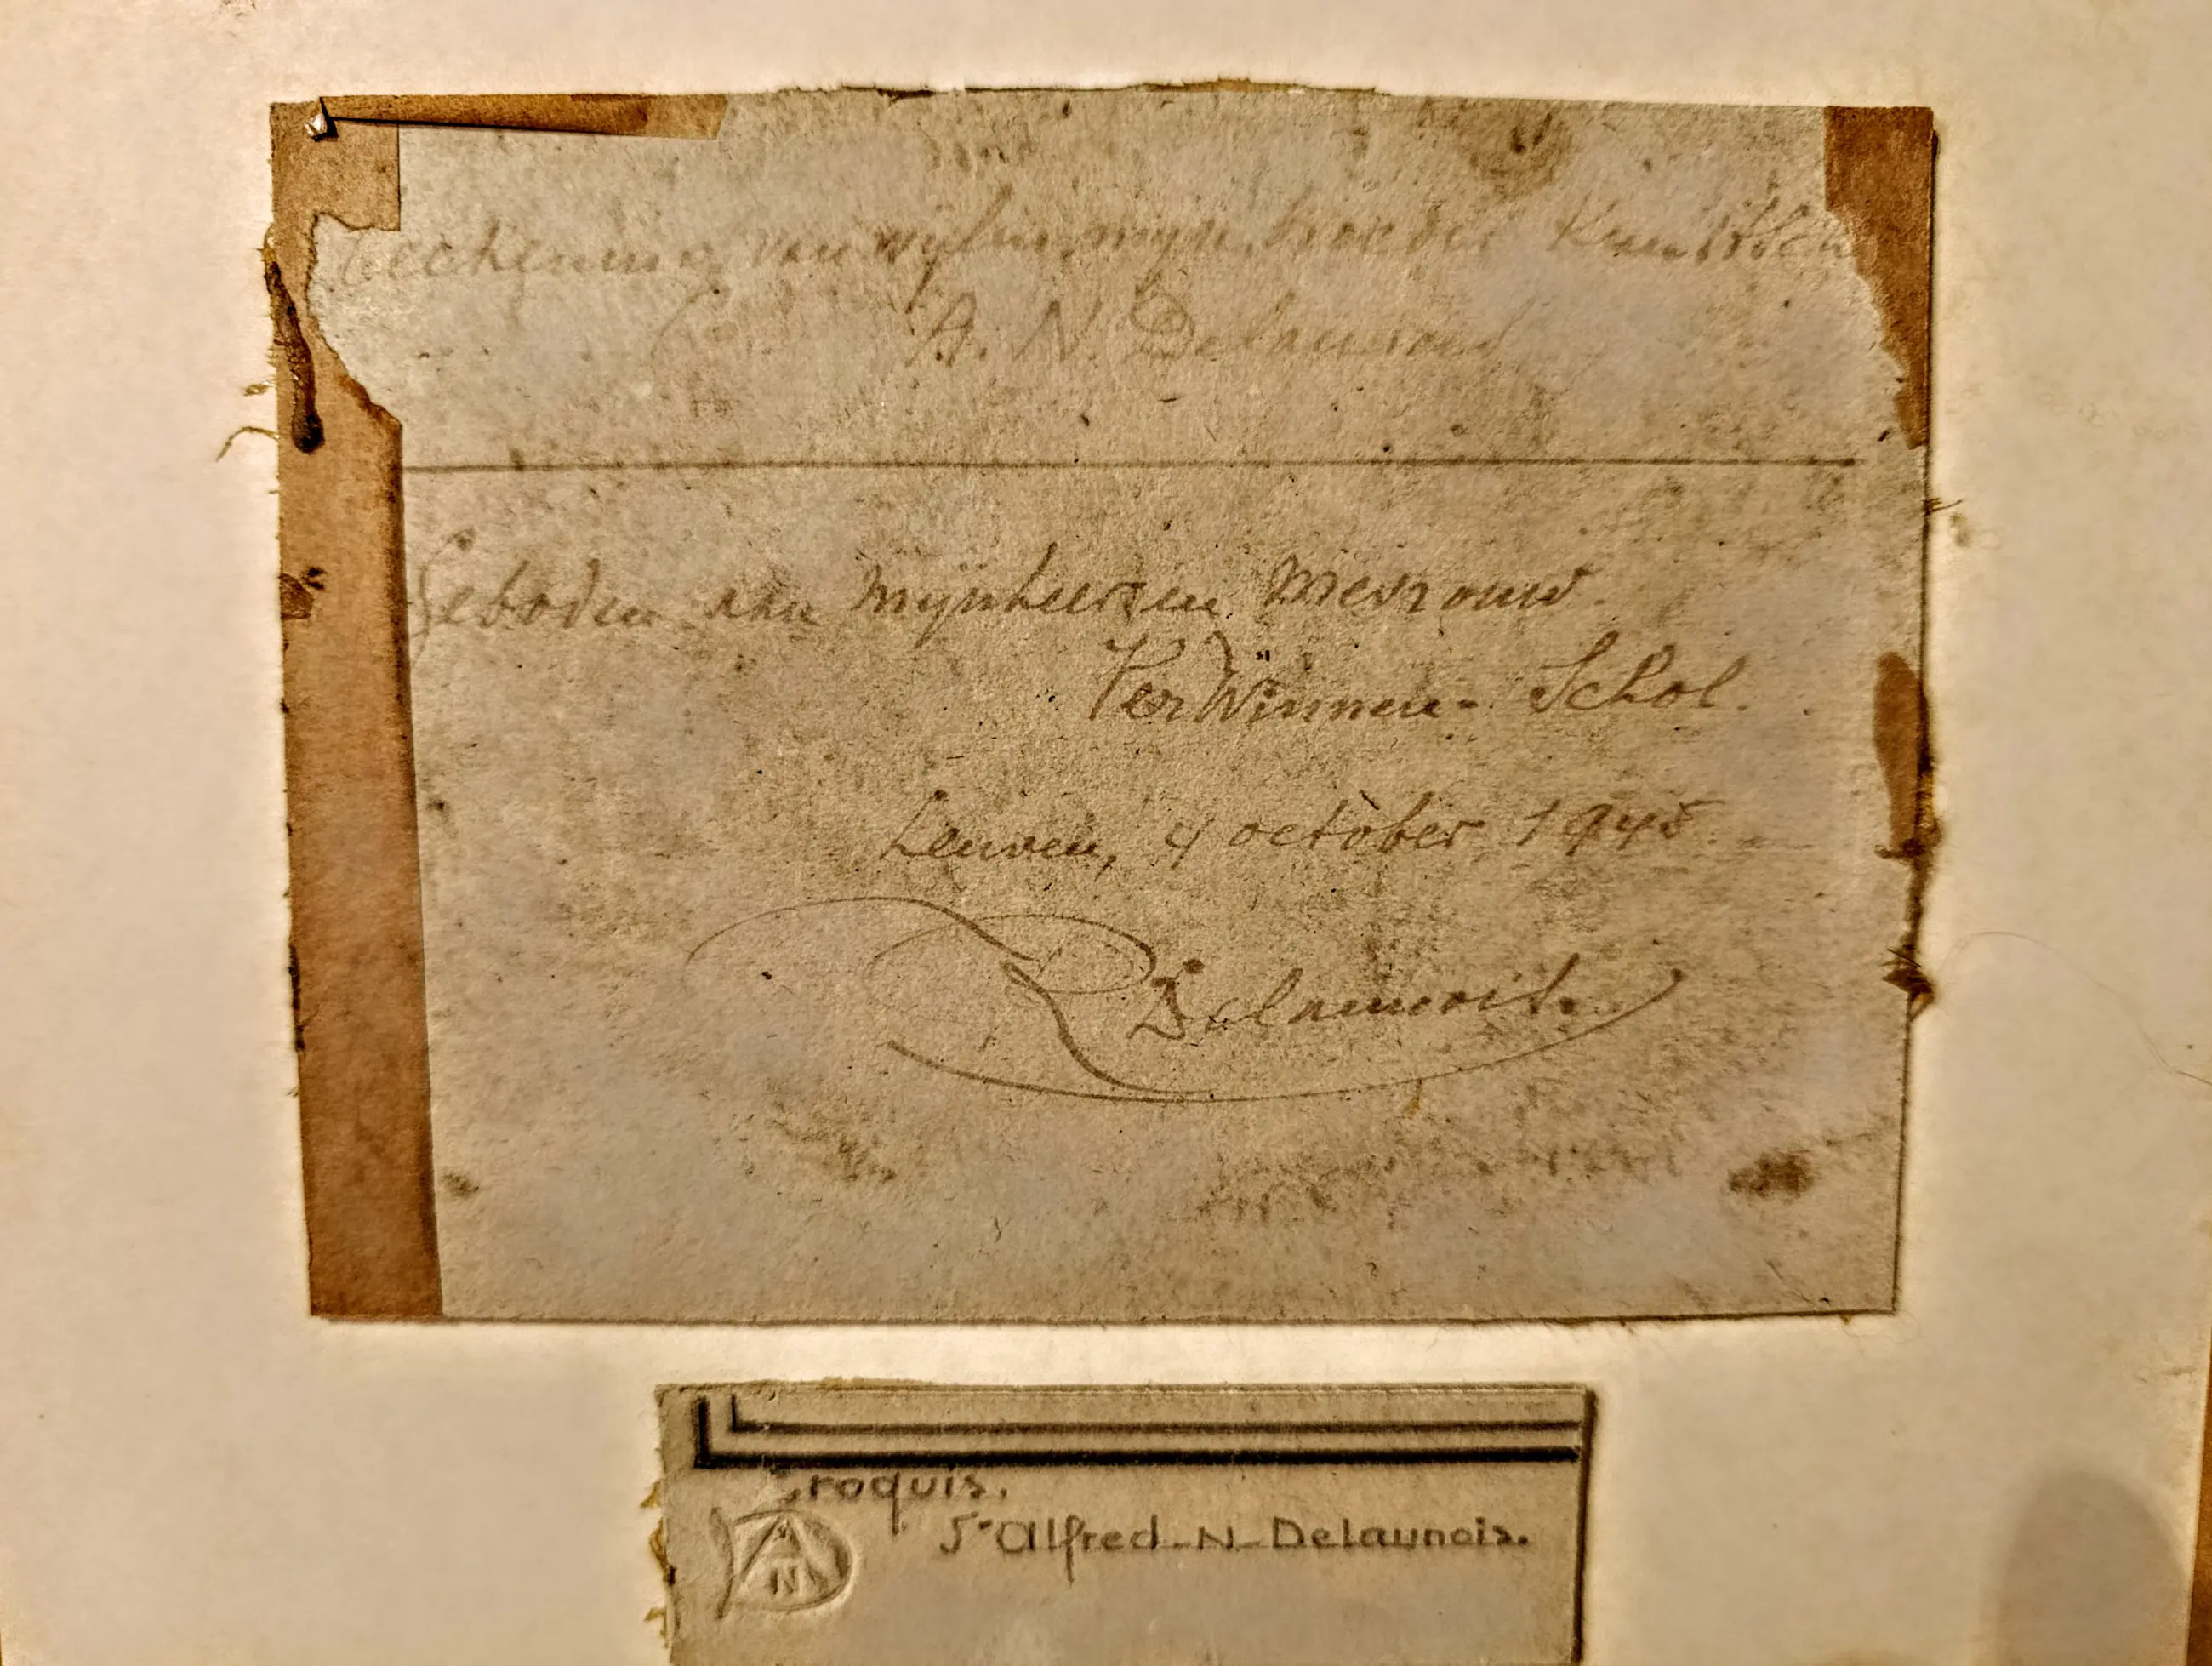 Teekening van wijlen mijn broeder Kunstsch
A. N. Delaunois
Geboden aan mijnheer en Mevrouw
VerWinnen - Schol.
Leuven, 4 october 1945
Delaunois.
roquis.
Alfred-N-Delaunois.
A
N